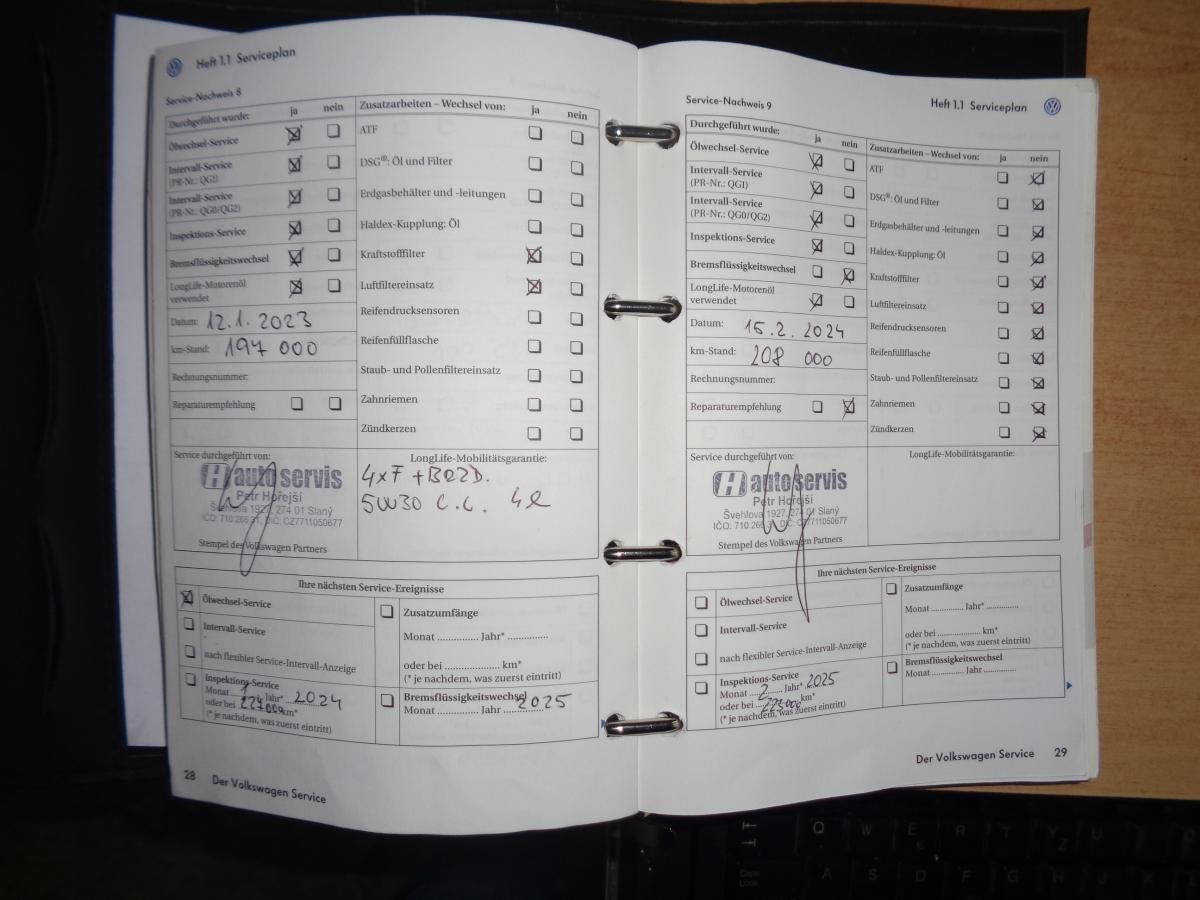 Heft 1.1 Serviceplan
Service-Nachweis 8
Durchgeführt wurde: ja nein
Ölwechsel-Service
Intervall-Service
(PR-Nr.: QG1)
Intervall-Service
(PR-Nr.: QG0/QG2)
Inspektions-Service
Bremsflüssigkeitswechsel
LongLife-Motorenöl
verwendet
Datum: 12.1.2023
km-Stand: 197 000
Rechnungsnummer:
Reparaturempfehlung
Zusatzarbeiten – Wechsel von: ja nein
ATF
DSG®: Öl und Filter
Erdgasbehälter und -leitungen
Haldex-Kupplung: Öl
Kraftstofffilter
Luftfiltereinsatz
Reifendrucksensoren
Reifenfüllflasche
Staub- und Pollenfiltereinsatz
Zahnriemen
Zündkerzen
Service durchgeführt von:
H autoservis
Petr Hořejší
Švehlova 1927, 274 01 Slaný
DIČ: CZ7711050677
Stempel des Volkswagen Partners
LongLife-Mobilitätsgarantie:
4xF + BRZD.
5W30 C.C. 4l
Ihre nächsten Service-Ereignisse
Ölwechsel-Service
Intervall-Service
nach flexibler Service-Intervall-Anzeige
Inspektions-Service
Monat 1 Jahr* 2024
oder bei km*
(* je nachdem, was zuerst eintritt)
Zusatzumfänge
Monat .............. Jahr* ..............
oder bei .................... km*
(* je nachdem, was zuerst eintritt)
Bremsflüssigkeitswechsel
Monat .............. Jahr 2025
28 Der Volkswagen Service
Service-Nachweis 9
Heft 1.1 Serviceplan
Durchgeführt wurde: ja nein
Ölwechsel-Service
Intervall-Service
(PR-Nr.: QG1)
Intervall-Service
(PR-Nr.: QG0/QG2)
Inspektions-Service
Bremsflüssigkeitswechsel
LongLife-Motorenöl
verwendet
Datum: 15.2.2024
km-Stand: 208 000
Rechnungsnummer:
Reparaturempfehlung
Zusatzarbeiten – Wechsel von: ja nein
ATF
DSG®: Öl und Filter
Erdgasbehälter und -leitungen
Haldex-Kupplung: Öl
Kraftstofffilter
Luftfiltereinsatz
Reifendrucksensoren
Reifenfüllflasche
Staub- und Pollenfiltereinsatz
Zahnriemen
Zündkerzen
Service durchgeführt von:
H autoservis
Petr Hořejší
Švehlova 1927, 274 01 Slaný
DIČ: CZ7711050677
Stempel des Volkswagen Partners
LongLife-Mobilitätsgarantie:
Ihre nächsten Service-Ereignisse
Ölwechsel-Service
Intervall-Service
nach flexibler Service-Intervall-Anzeige
Inspektions-Service
Monat 2 Jahr* 2025
oder bei km*
(* je nachdem, was zuerst eintritt)
Zusatzumfänge
Monat .............. Jahr* ..............
oder bei .................... km*
(* je nachdem, was zuerst eintritt)
Bremsflüssigkeitswechsel
Monat .............. Jahr ..............
Der Volkswagen Service 29
Q W E R T Z U
€
Caps Lock A S D F G H J